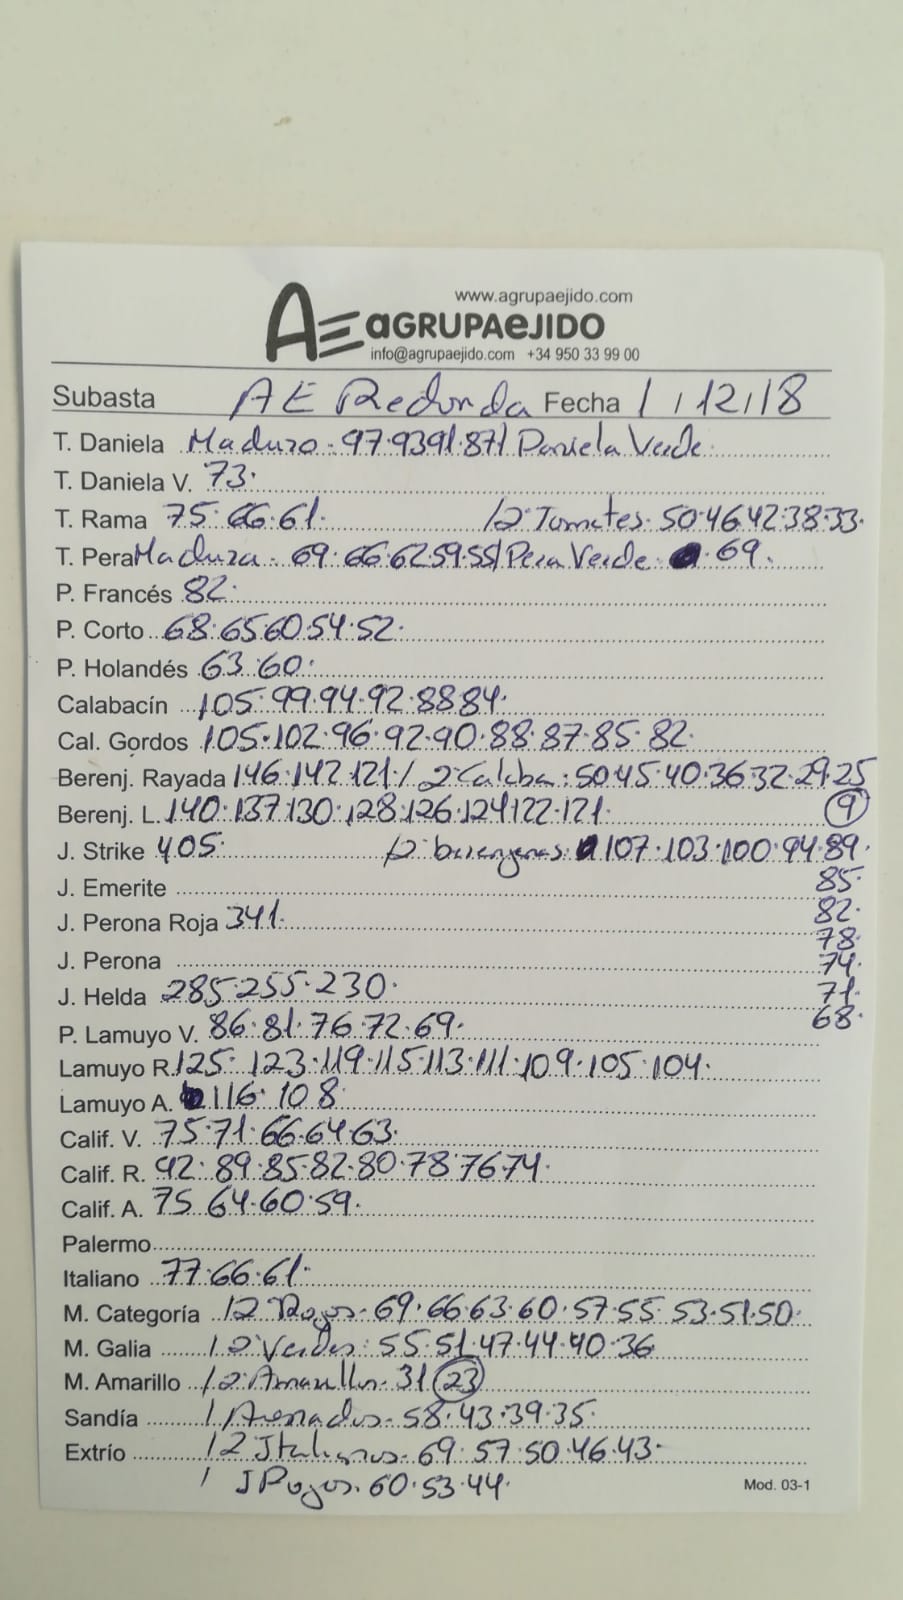 www.agrupaejido.com
AE aGRUPAeJIDO
info@agrupaejido.com +34 950 33 99 00
Subasta AE Redonda Fecha 1/12/18
T. Daniela Maduro. 97.93 91.87/ Daniela Verde.
T. Daniela V. 73.
T. Rama 75.66.61. /2ª Tomates. 50.46.42.38.33.
T. Pera Madura. 69.66.62.59.55/ Pera Verde. 69.
P. Francés 82.
P. Corto 68.65.60.54.52.
P. Holandés 63.60.
Calabacín 105.99.94.92.88.84.
Cal. Gordos 105.102.96.92.90.88.87.85.82.
Berenj. Rayada 146.142.121./ 2ª Calaba: 50.45.40.36.32.29.25
Berenj. L. 140.137.130.128.126.124.122.121. (9)
J. Strike 405. /2ª berenjenas. 107.103.100.94.89.
J. Emerite 85.
J. Perona Roja 341. 82.
78.
J. Perona 74.
J. Helda 285.255.230. 71.
P. Lamuyo V. 86.81.76.72.69. 68.
Lamuyo R. 125.123.119.115.113.111.109.105.104.
Lamuyo A. 116.108
Calif. V. 75.71.66.64.63.
Calif. R. 92.89.85.82.80.78.76.74.
Calif. A. 75.64.60.59.
Palermo
Italiano 77.66.61.
M. Categoría /2ª Rojos. 69.66.63.60.57.55.53.51.50.
M. Galia /2ª Verdes: 55.51.47.44.40.36
M. Amarillo /2ª Amarillos. 31 (23)
Sandía / Asenados. 58.43.39.35.
Extrío /2ª Italianos. 69.57.50.46.43.
/ J Rojos. 60.53.44.
Mod. 03-1